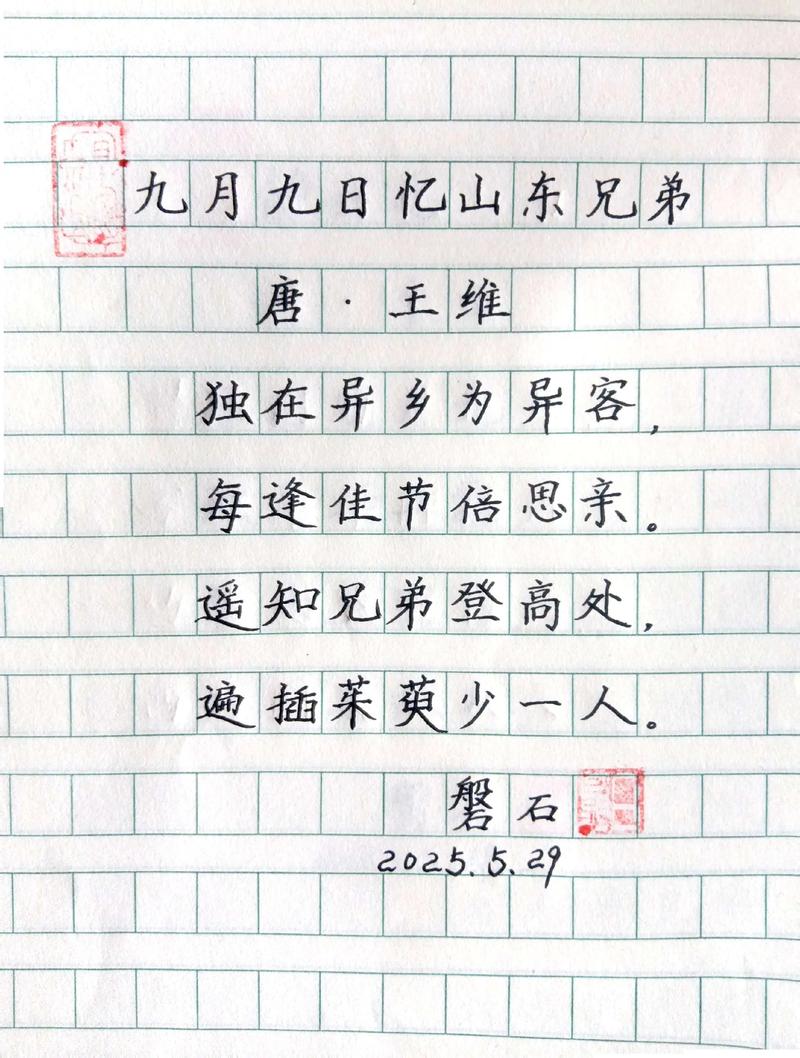 九月九日忆山东兄弟
唐·王维
独在异乡为异客，
每逢佳节倍思亲。
遥知兄弟登高处，
遍插茱萸少一人。
磐石
2025.5.29